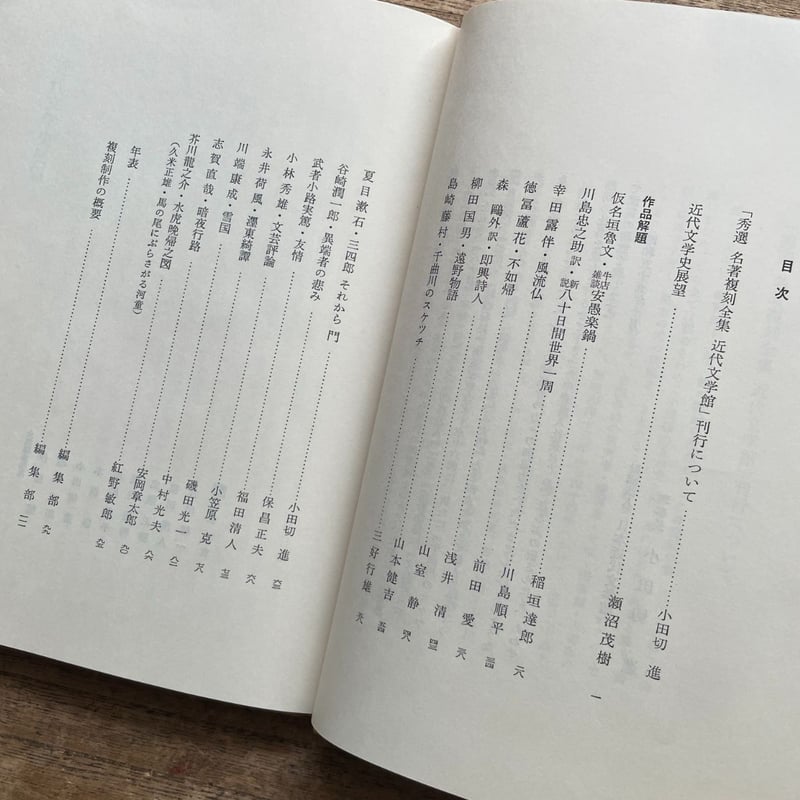 目次
「秀選 名著複刻全集 近代文学館」刊行について 小田切 進
近代文学史展望 瀬沼茂樹 一
作品解題
仮名垣魯文・牛店雑談安愚楽鍋 稲垣達郎
川島忠之助訳・新説八十日間世界一周 川島順平
幸田露伴・風流仏 前田 愛
徳冨蘆花・不如帰 浅井 清
森鷗外訳・即興詩人 山室 静
柳田国男・遠野物語 山本健吉
島崎藤村・千曲川のスケッチ 三好行雄
夏目漱石・三四郎 それから 門 小田切 進
谷崎潤一郎・異端者の悲み 保昌正夫
武者小路実篤・友情 福田清人
小林秀雄・文芸評論 小笠原 克
永井荷風・濹東綺譚 磯田光一
川端康成・雪国 中村光夫
志賀直哉・暗夜行路 安岡章太郎
芥川龍之介・水虎晩帰之図 紅野敏郎
(久米正雄・馬の尾にぶらさがる河童)
年表 編集部
複刻制作の概要 編集部